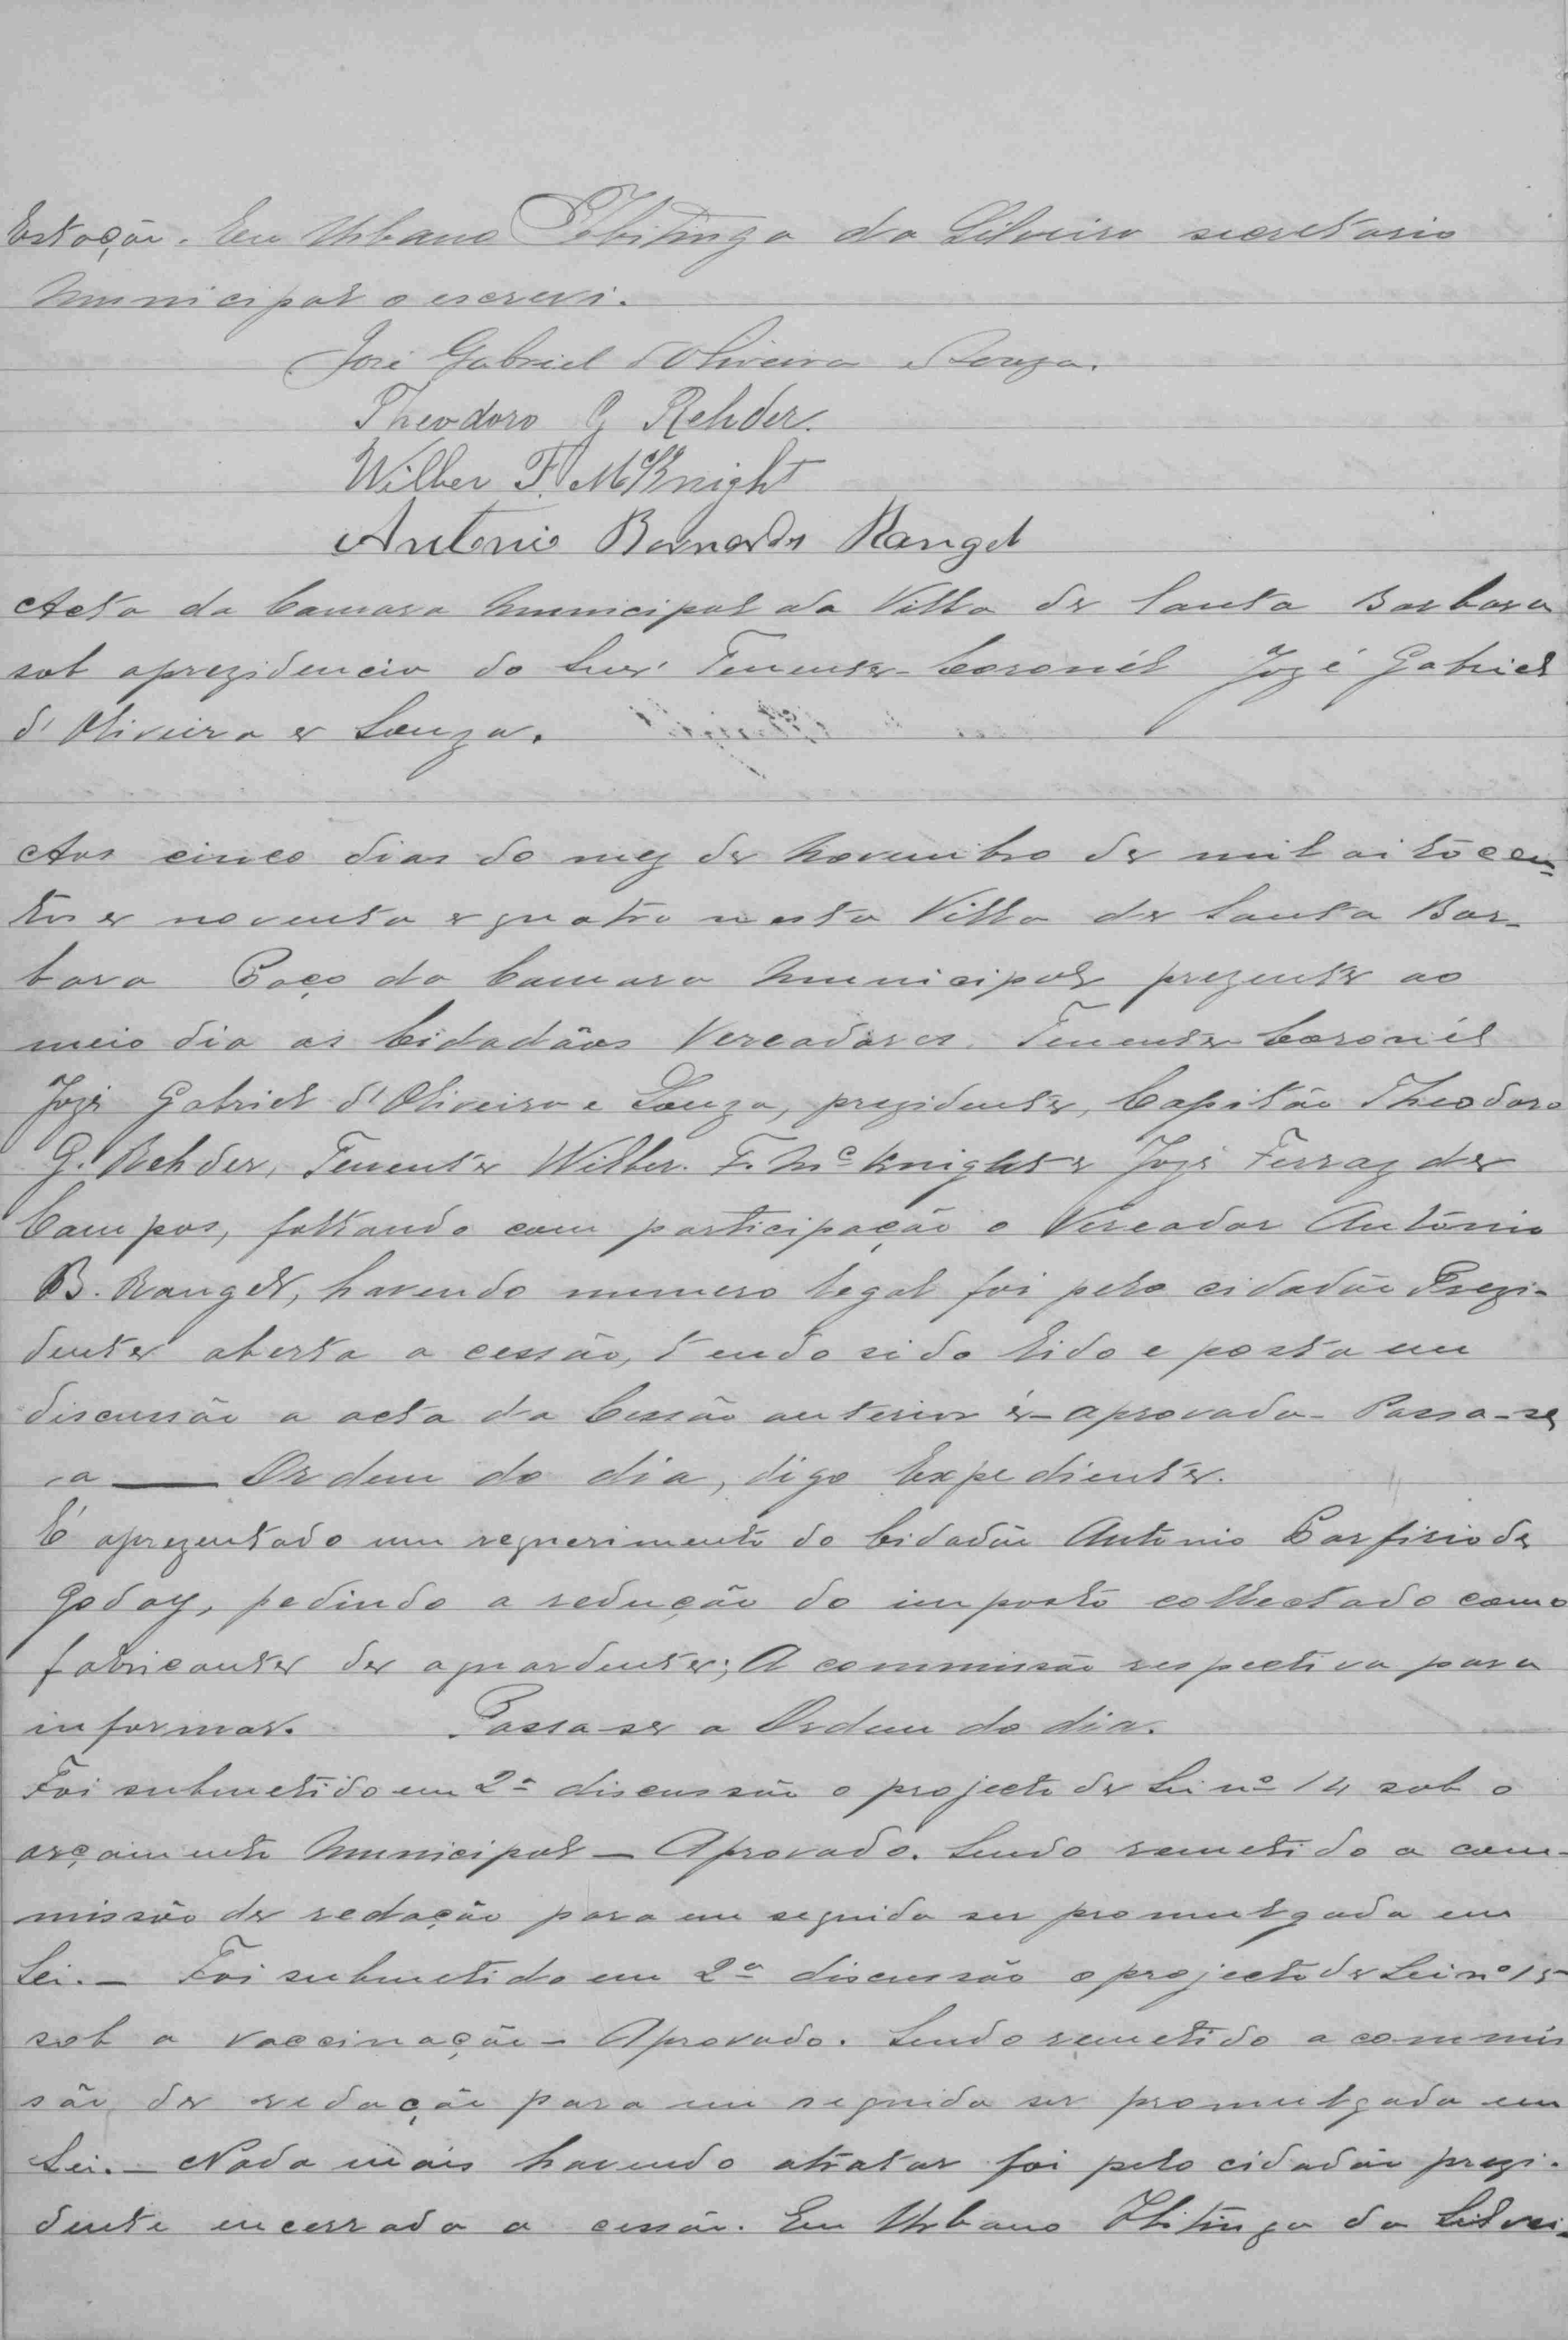 Estação. Eu Urbano Ibitinga da Silveira secretario
Municipal o escrevi.
José Gabriel d'Oliveira e Souza.
Theodoro G Rehder.
Wilber F. McKnight
Antonio Bernardo Rangel
Acta da Camara Municipal da Villa de Santa Barbara
sob a prezidencia do Snr' Tenente-Coronél Jozé Gabriel
d'Oliveira e Souza.
Aos cinco dias do mez de Novembro de mil oitocen-
tos e noventa e quatro nesta Villa de Santa Bar-
bara Paço da Camara Municipal prezente ao
meio dia os Cidadãos Vereadores Tenente Coronél
Jozé Gabriel d'Oliveira e Souza, prezidente, Capitão Theodoro
G. Rehder, Tenente Wilber. F. Mc Knight e Jozé Ferraz de
Campos, faltando com participação o Vereador Antônio
B. Rangel, havendo numero legal foi pelo cidadão Prezi-
dente aberta a cessão, tendo sido lido e posta em
discussão a acta da Cessão anterior é-aprovada- Passa-se
a — Ordem do dia, digo Expediente.
É aprezentado um requerimento do Cidadão Antonio Porfirio de
Godoy, pedindo a redução do imposto collectado como
fabricante de aguardente; A commissão respectiva para
informar. Passa-se a Ordem do dia.
Foi submetido em 2ª discussão o projecto de Lei nº 14 sob o
orçamento Municipal - Aprovado. Sendo remetido a com-
missão de redação para em seguida ser promulgada em
Lei. - Foi submetido em 2ª discussão o projecto de Lei nº 15
sob a vaccinação - Aprovado. Sendo remetido a commis
são de redação para em seguida ser promulgada em
Lei. - Nada mais havendo atratar foi pelo cidadão prezi-
dente encerrada a cessão. Eu Urbano Ibitinga da Silvei-